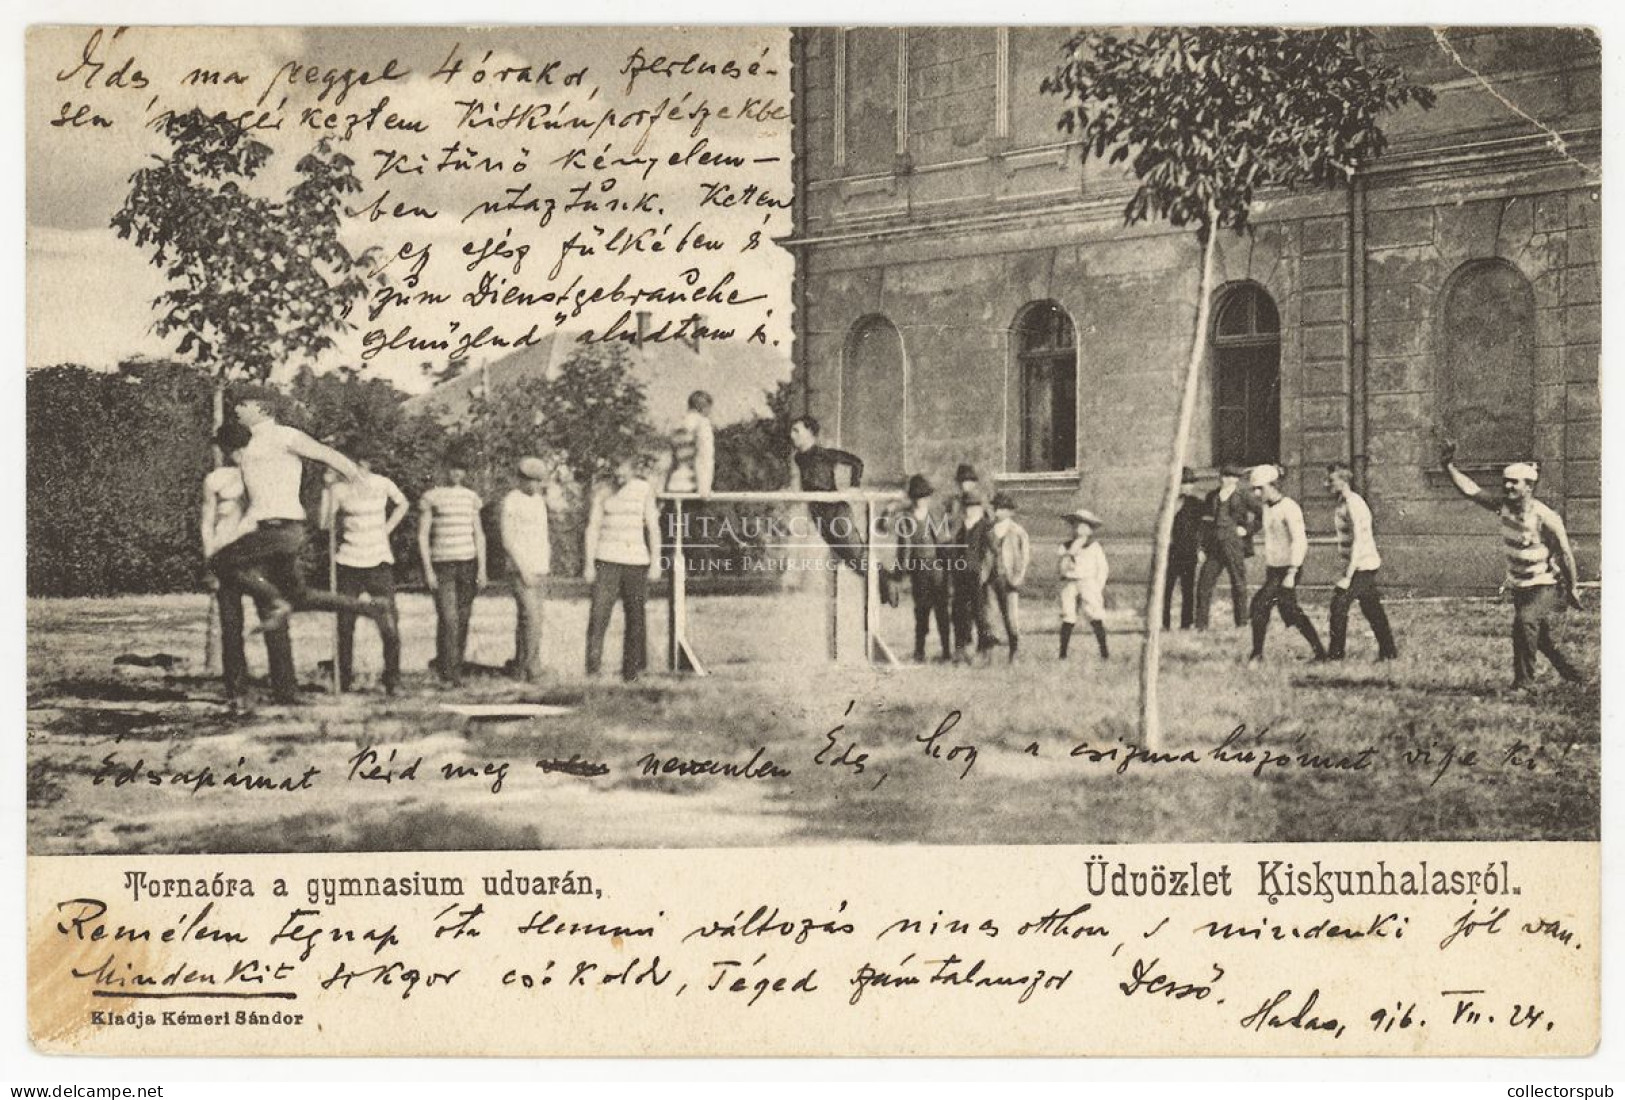 Édes, ma reggel 4 órakor, szerencsé-
sen megérkeztem Kiskúnporfészekbe
Kitünő kényelem-
ben utaztunk. Ketten
egy egész fülkében s
"zum Dienstgebrauche
genügend" aludtam is.
HTAUKCIO.COM
ONLINE PAPÍRRÉGISÉG AUKCIÓ
Édsapámat kérd meg nevemben Édes, hogy a csizmahúzómat vigye ki!
Tornaóra a gymnasium udvarán,
Üdvözlet Kiskunhalasról.
Remélem tegnap óta semmi változás nincs otthon, s mindenki jól van.
Mindenkit sokszor csókolok, Téged számtalanszor Dezső.
Kiadja Kémeri Sándor
Halas, 916. VII. 24.
www.delcampe.net
collectorspub